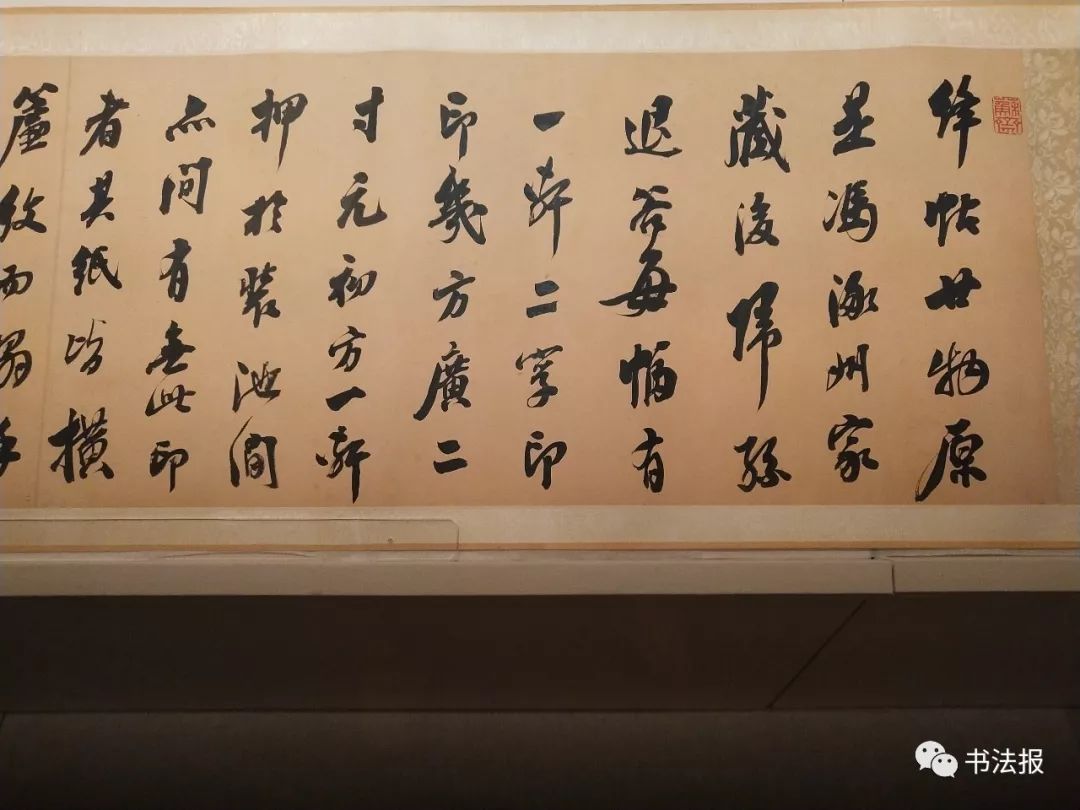 绛帖廿册原
是馮涿州家
藏後歸孫
退谷每幅有
一軒二字印
印幾方廣二
寸元初方一軒
押於裝池間
点间有無此印
者其紙皆橫
簾紋而
书法报